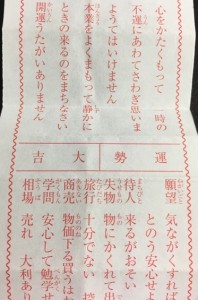 心をかたくもって 時の
不運にあわてさわぎ思いま
ようてはいけません
本業をよくまもって静かに
ときの来るのをまちなさい
開運うたがいありません
運勢 大吉
願望 気ながくすれば
とのう安心せ
待人 来るがおそい
失物 物にかくれて出
旅行 十分でない
商売 物価下る買うは
学問 安心して勉学せ
相場 売れ 大利あり